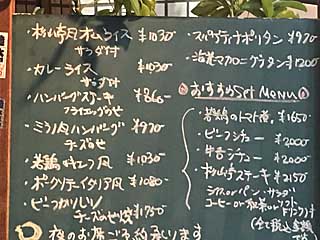 ・杉山特風オムライス ¥1030
サラダ付
・カレーライス ¥1030
サラダ付
・ハンバーグステーキ ¥860
フライエッグのせ
・ミラノ風ハンバーグ ¥970
チーズのせ
・若鶏 ¥1030
・ポークソテーイタリア風 ¥1080
・ビーフカツレツ
チーズのせ焼 ¥1750
夜のお席ご予約承ります
・スパゲティナポリタン ¥970
・海老マカロニグラタン ¥1200
おすすめSet Menu
・若鶏のトマト煮 ¥1650
・ビーフシチュー ¥2000
・牛舌シチュー ¥2000
・ステーキ ¥2150
ライスorパン・サラダ
コーヒーor紅茶orソフトドリンク付
(全て税込価格です)